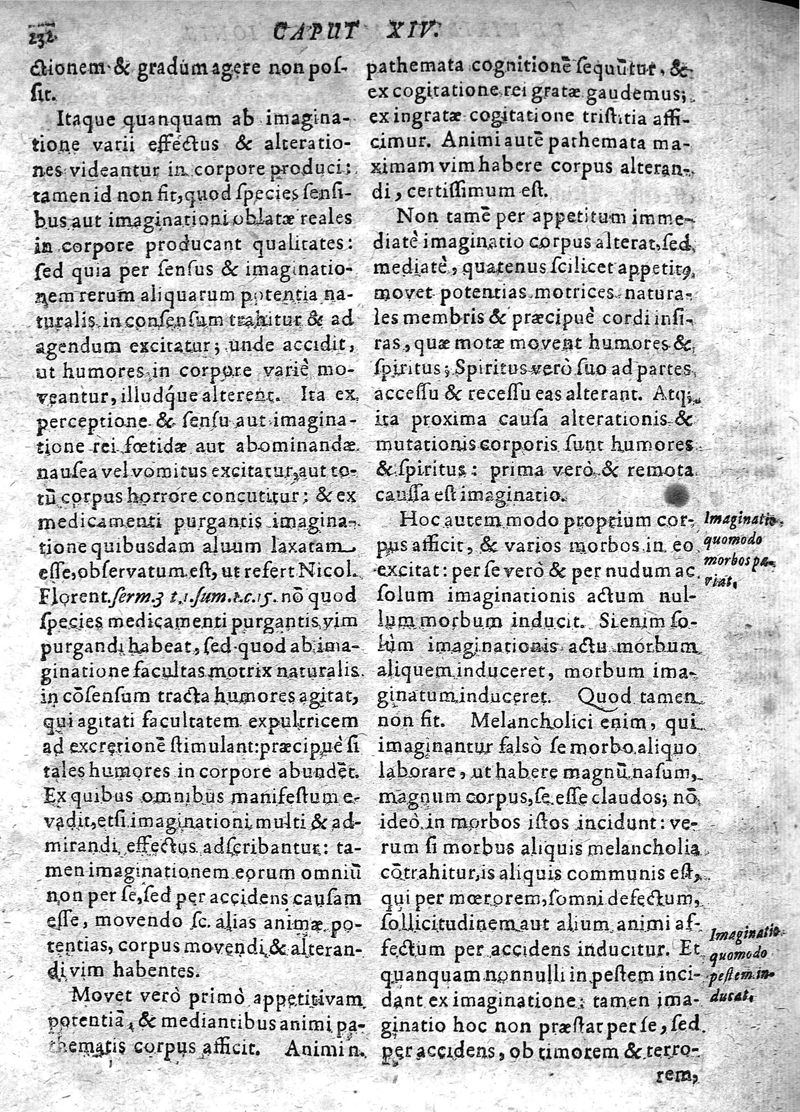 232
CAPUT XIV.
ctionem & gradum agere non pos-
sit.
Itaque quanquam ab imagina-
tione varii effectus & alteratio-
nes videantur in corpore produci;
tamen id non fit, quod species sensi-
bus aut imaginationi oblatæ reales
in corpore producant qualitates:
sed quia per sensus & imaginatio-
nem rerum aliquarum potentia na-
turalis in consensum trahitur & ad
agendum excitatur; unde accidit,
ut humores in corpore variè mo-
veantur, illudq́ue alterent. Ita ex
perceptione & sensu aut imagina-
tione rei fœtidæ aut abominandæ
nausea vel vomitus excitatur, aut to-
tũ corpus horrore concutitur; & ex
medicamenti purgantis imagina-
tione quibusdam aluum laxatam
esse, observatum est, ut refert Nicol.
Florent. serm.3 t.1. sum.t.c.15. nõ quod
species medicamenti purgantis vim
purgandi habeat, sed quod ab ima-
ginatione facultas motrix naturalis
in cõsensum tracta humores agitat,
qui agitati facultatem expultricem
ad excretionẽ stimulant: præcipuè si
tales humores in corpore abundẽt.
Ex quibus omnibus manifestum e-
vadit, etsi imaginationi multi & ad-
mirandi effectus adscribantur: ta-
men imaginationem eorum omniũ
non per se, sed per accidens causam
esse, movendo sc. alias animæ po-
tentias, corpus movendi & alteran-
di vim habentes.
Movet verò primò appetitivam
potentiã, & mediantibus animi pa-
thematis corpus afficit. Animi n.
pathemata cognitionẽ sequũtur, &
ex cogitatione rei gratæ gaudemus;
ex ingratæ cogitatione tristitia affi-
cimur. Animi autẽ pathemata ma-
ximam vim habere corpus alteran-
di, certissimum est.
Non tamẽ per appetitum imme-
diatè imaginatio corpus alterat, sed
mediatè, quatenus scilicet appetitꝰ
movet potentias motrices natura-
les membris & præcipuè cordi insi-
ras, quæ motæ movent humores &
spiritus; Spiritus verò suo ad partes
accessu & recessu eas alterant. Atq;
ita proxima causa alterationis &
mutationis corporis sunt humores
& spiritus: prima verò & remota
caussa est imaginatio.
Hoc autem modo proptium cor-
pus afficit, & varios morbos in eo
excitat: per se verò & per nudum ac
solum imaginationis actum nul-
lum morbum inducit. Si enim so-
lùm imaginationis actu morbum
aliquem induceret, morbum ima-
ginatum induceret. Quod tamen
non fit. Melancholici enim, qui
imaginantur falsò se morbo aliquo
laborare, ut habere magnũ nasum,
magnum corpus, se esse claudos; nõ
ideò in morbos istos incidunt: ve-
rum si morbus aliquis melancholia
cõtrahitur, is aliquis communis est,
qui per mœrorem, somni defectum,
sollicitudinem aut alium animi af-
fectum per accidens inducitur. Et
quanquam nonnulli in pestem inci-
dant ex imaginatione: tamen ima-
ginatio hoc non præstat per se, sed
per accidens, ob timorem & terro-
rem,
Imaginatio
quomodo
morbos pa-
riat.
Imaginatio
quomodo
pestem in-
ducat.